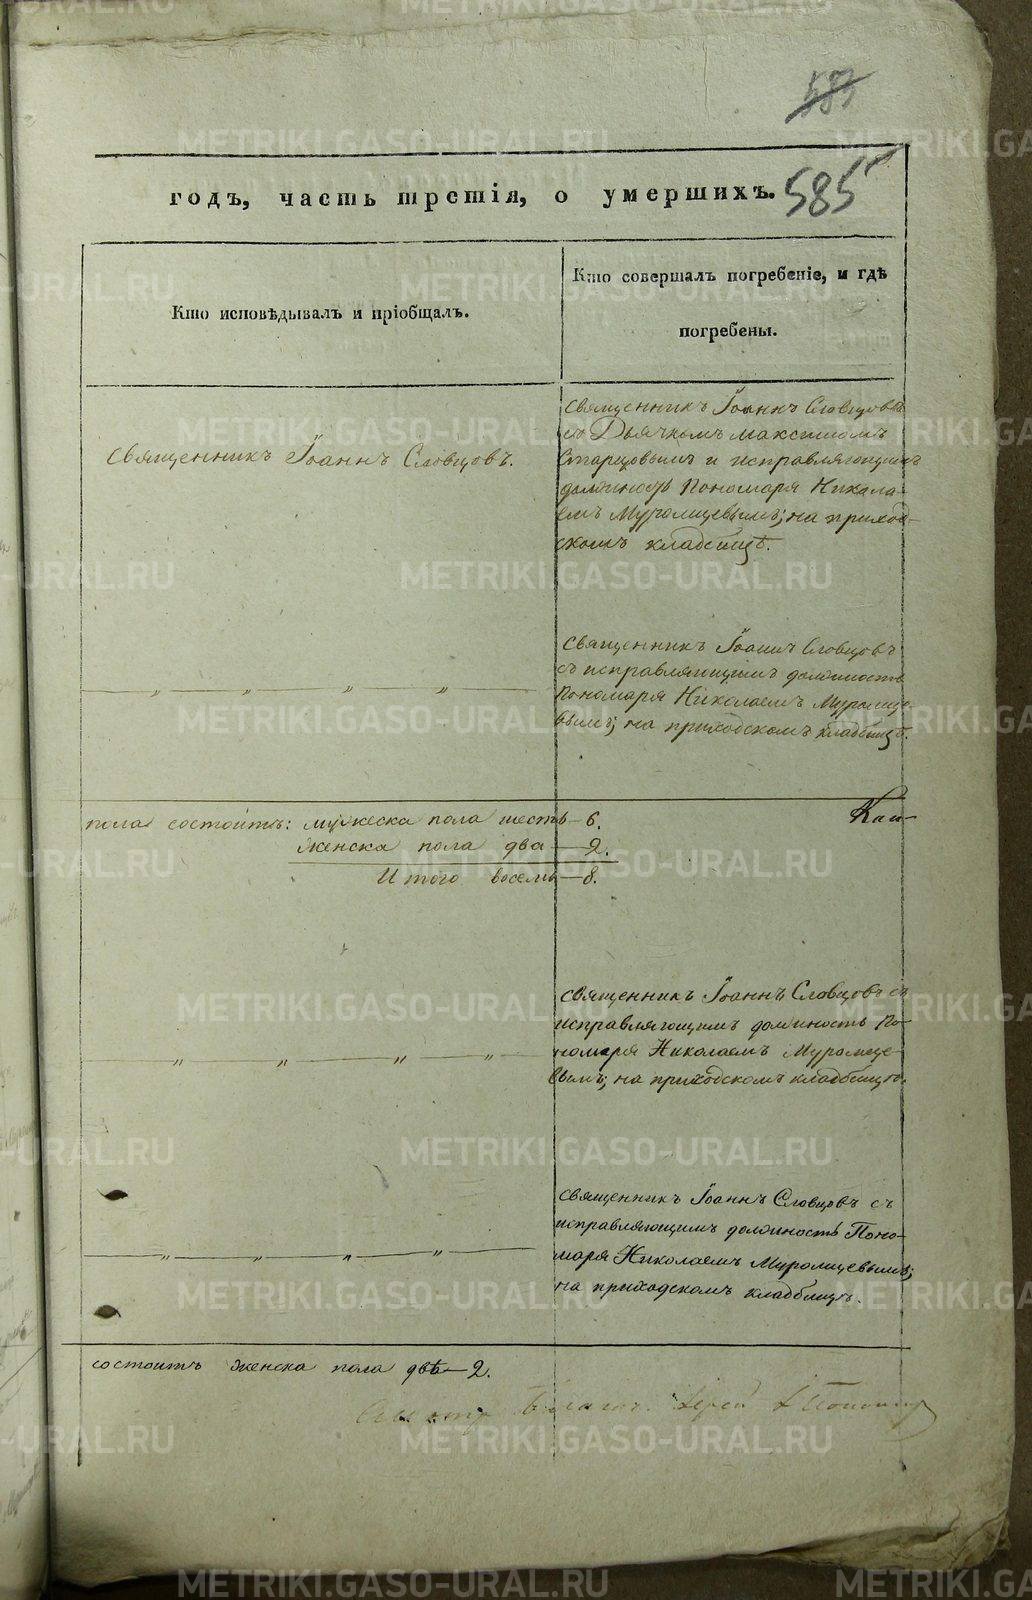 583
585
годъ, часть третія, о умершихъ.
Кто исповѣдывалъ и пріобщалъ.
Кто совершалъ погребеніе, и гдѣ
погребены.
Священникъ Іоаннъ Словцовъ.
Священникъ Іоаннъ Словцовъ
съ Дьячкомъ Максимомъ
Старцовымъ и исправляющимъ
должность Пономаря Никола-
емъ Муромцевымъ; на приход-
скомъ кладбищѣ.
— „ — „ — „ — „ —
Священникъ Іоаннъ Словцовъ
съ исправляющимъ должность
Пономаря Николаемъ Муромце-
вымъ; на приходскомъ кладбищѣ.
пола состоитъ: мужеска пола шесть — 6.
женска пола два — 2.
Итого восемь — 8.
— „ — „ — „ — „ —
Священникъ Іоаннъ Словцовъ съ
исправляющимъ должность По-
номаря Николаемъ Муромце-
вымъ; на приходскомъ кладбищѣ.
— „ — „ — „ — „ —
Священникъ Іоаннъ Словцовъ съ
исправляющимъ должность Поно-
маря Николаемъ Муромцевымъ;
на приходскомъ кладбищѣ.
состоитъ женска пола двѣ — 2.
METRIKI.GASO-URAL.RU